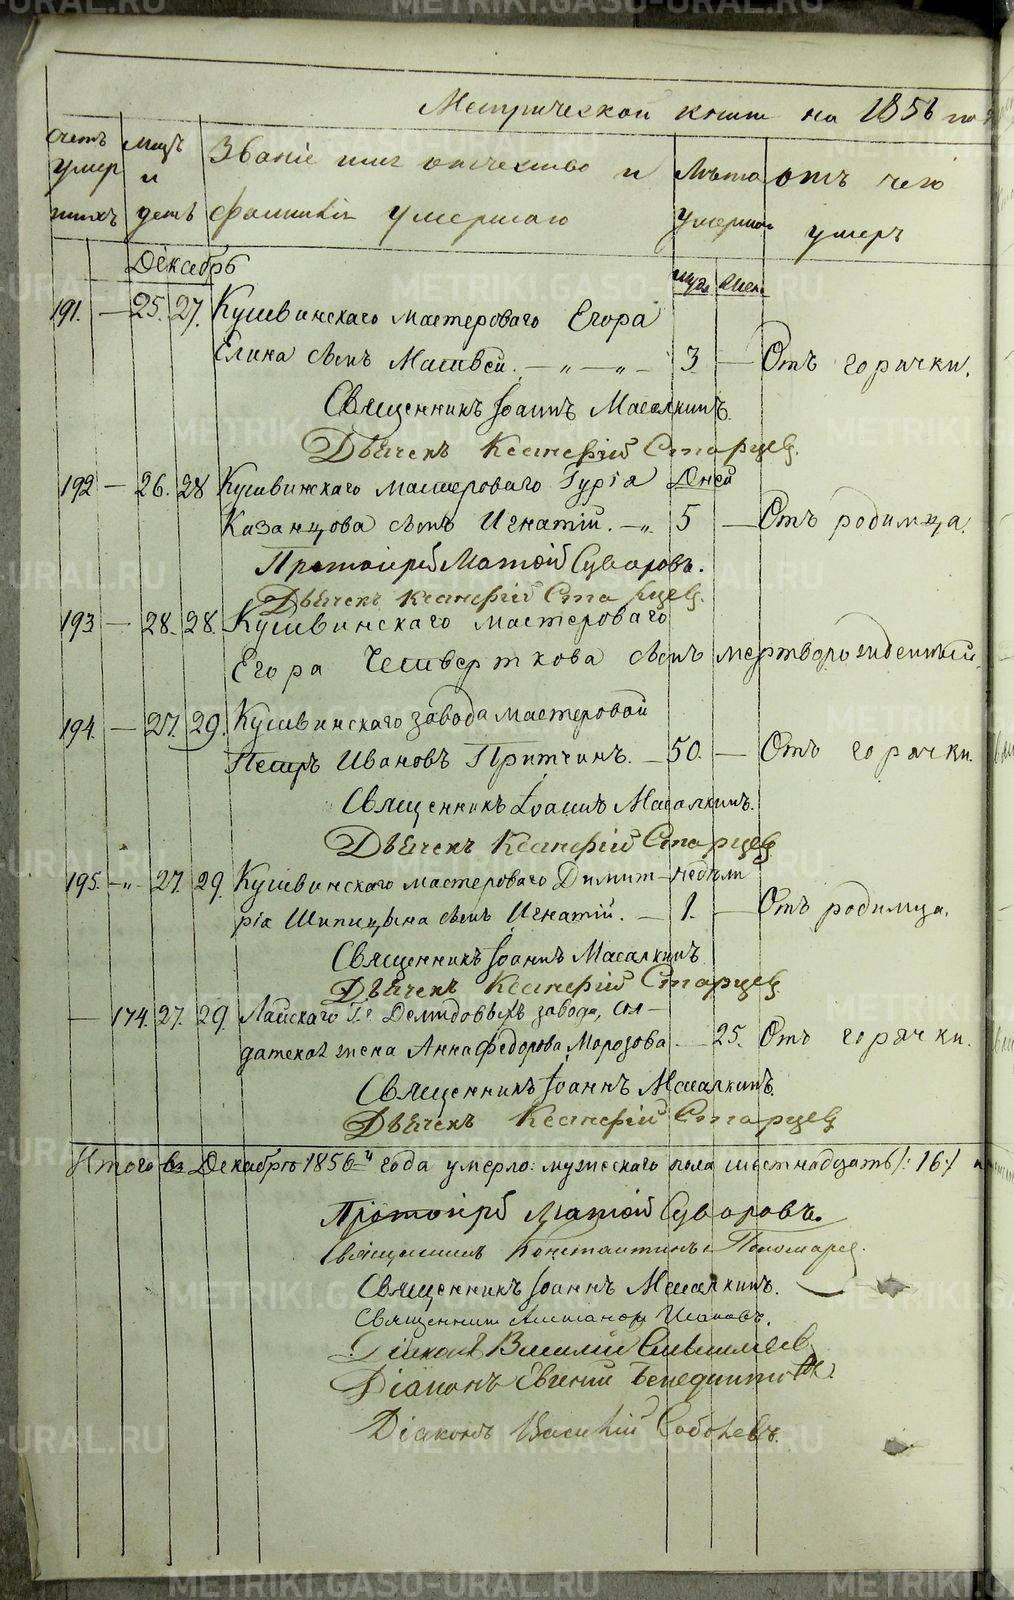 Метрической книги на 1856 го
счетъ мцъ Званіе имя отчество и Лѣта отъ чего
умер и
шихъ день фамилія умершаго умершаго умеръ
Декабрь муж. жен.
191. — 25. 27. Кушвинскаго мастероваго Егора
Елина сынъ Матвей. — „ — „ — 3 — Отъ горячки.
Священникъ Іоаннъ Масалкинъ.
Дьячекъ Ксанфій Старцев.
192 — 26. 28 Кушвинскаго мастероваго Гурія Дней
Казанцова сынъ Игнатій. — „ 5 — Отъ родимца.
Протоіерей Матѳій Суворовъ.
Дьячекъ Ксанфій Старцев.
193 — 28. 28. Кушвинскаго мастероваго
Егора Четверткова сынъ мертворожденный.
194. — 27. 29. Кушвинскаго завода мастеровой
Петръ Ивановъ Притчинъ. — 50. — Отъ горячки.
Священникъ Іоаннъ Масалкинъ.
Дьячекъ Ксанфій Старцев
195. — „ — 27. 29. Кушвинскаго мастероваго Димит- недѣли
рія Шипицына сынъ Игнатій. — 1. — Отъ родимца.
Священникъ Іоаннъ Масалкинъ
Дьячекъ Ксанфій Старцев.
— 174. 27. 29. Лайскаго Гг Демидовыхъ завода, сол-
датская жена Анна Федорова Морозова — 25. Отъ горячки.
Священникъ Іоаннъ Масалкинъ.
Дьячекъ Ксанфій Старцев
Итого въ Декабрѣ 1856 го года умерло: мужескаго пола шестнадцать /: 16 :/
Протоіерей Матѳій Суворовъ.
Священникъ Константинъ Пономарев.
Священникъ Іоаннъ Масалкинъ.
Священникъ
Діаконъ Василій
Діаконъ Евгеній Бенедиктов
Діаконъ Василій Соболевъ.
METRIKI.GASO-URAL.RU